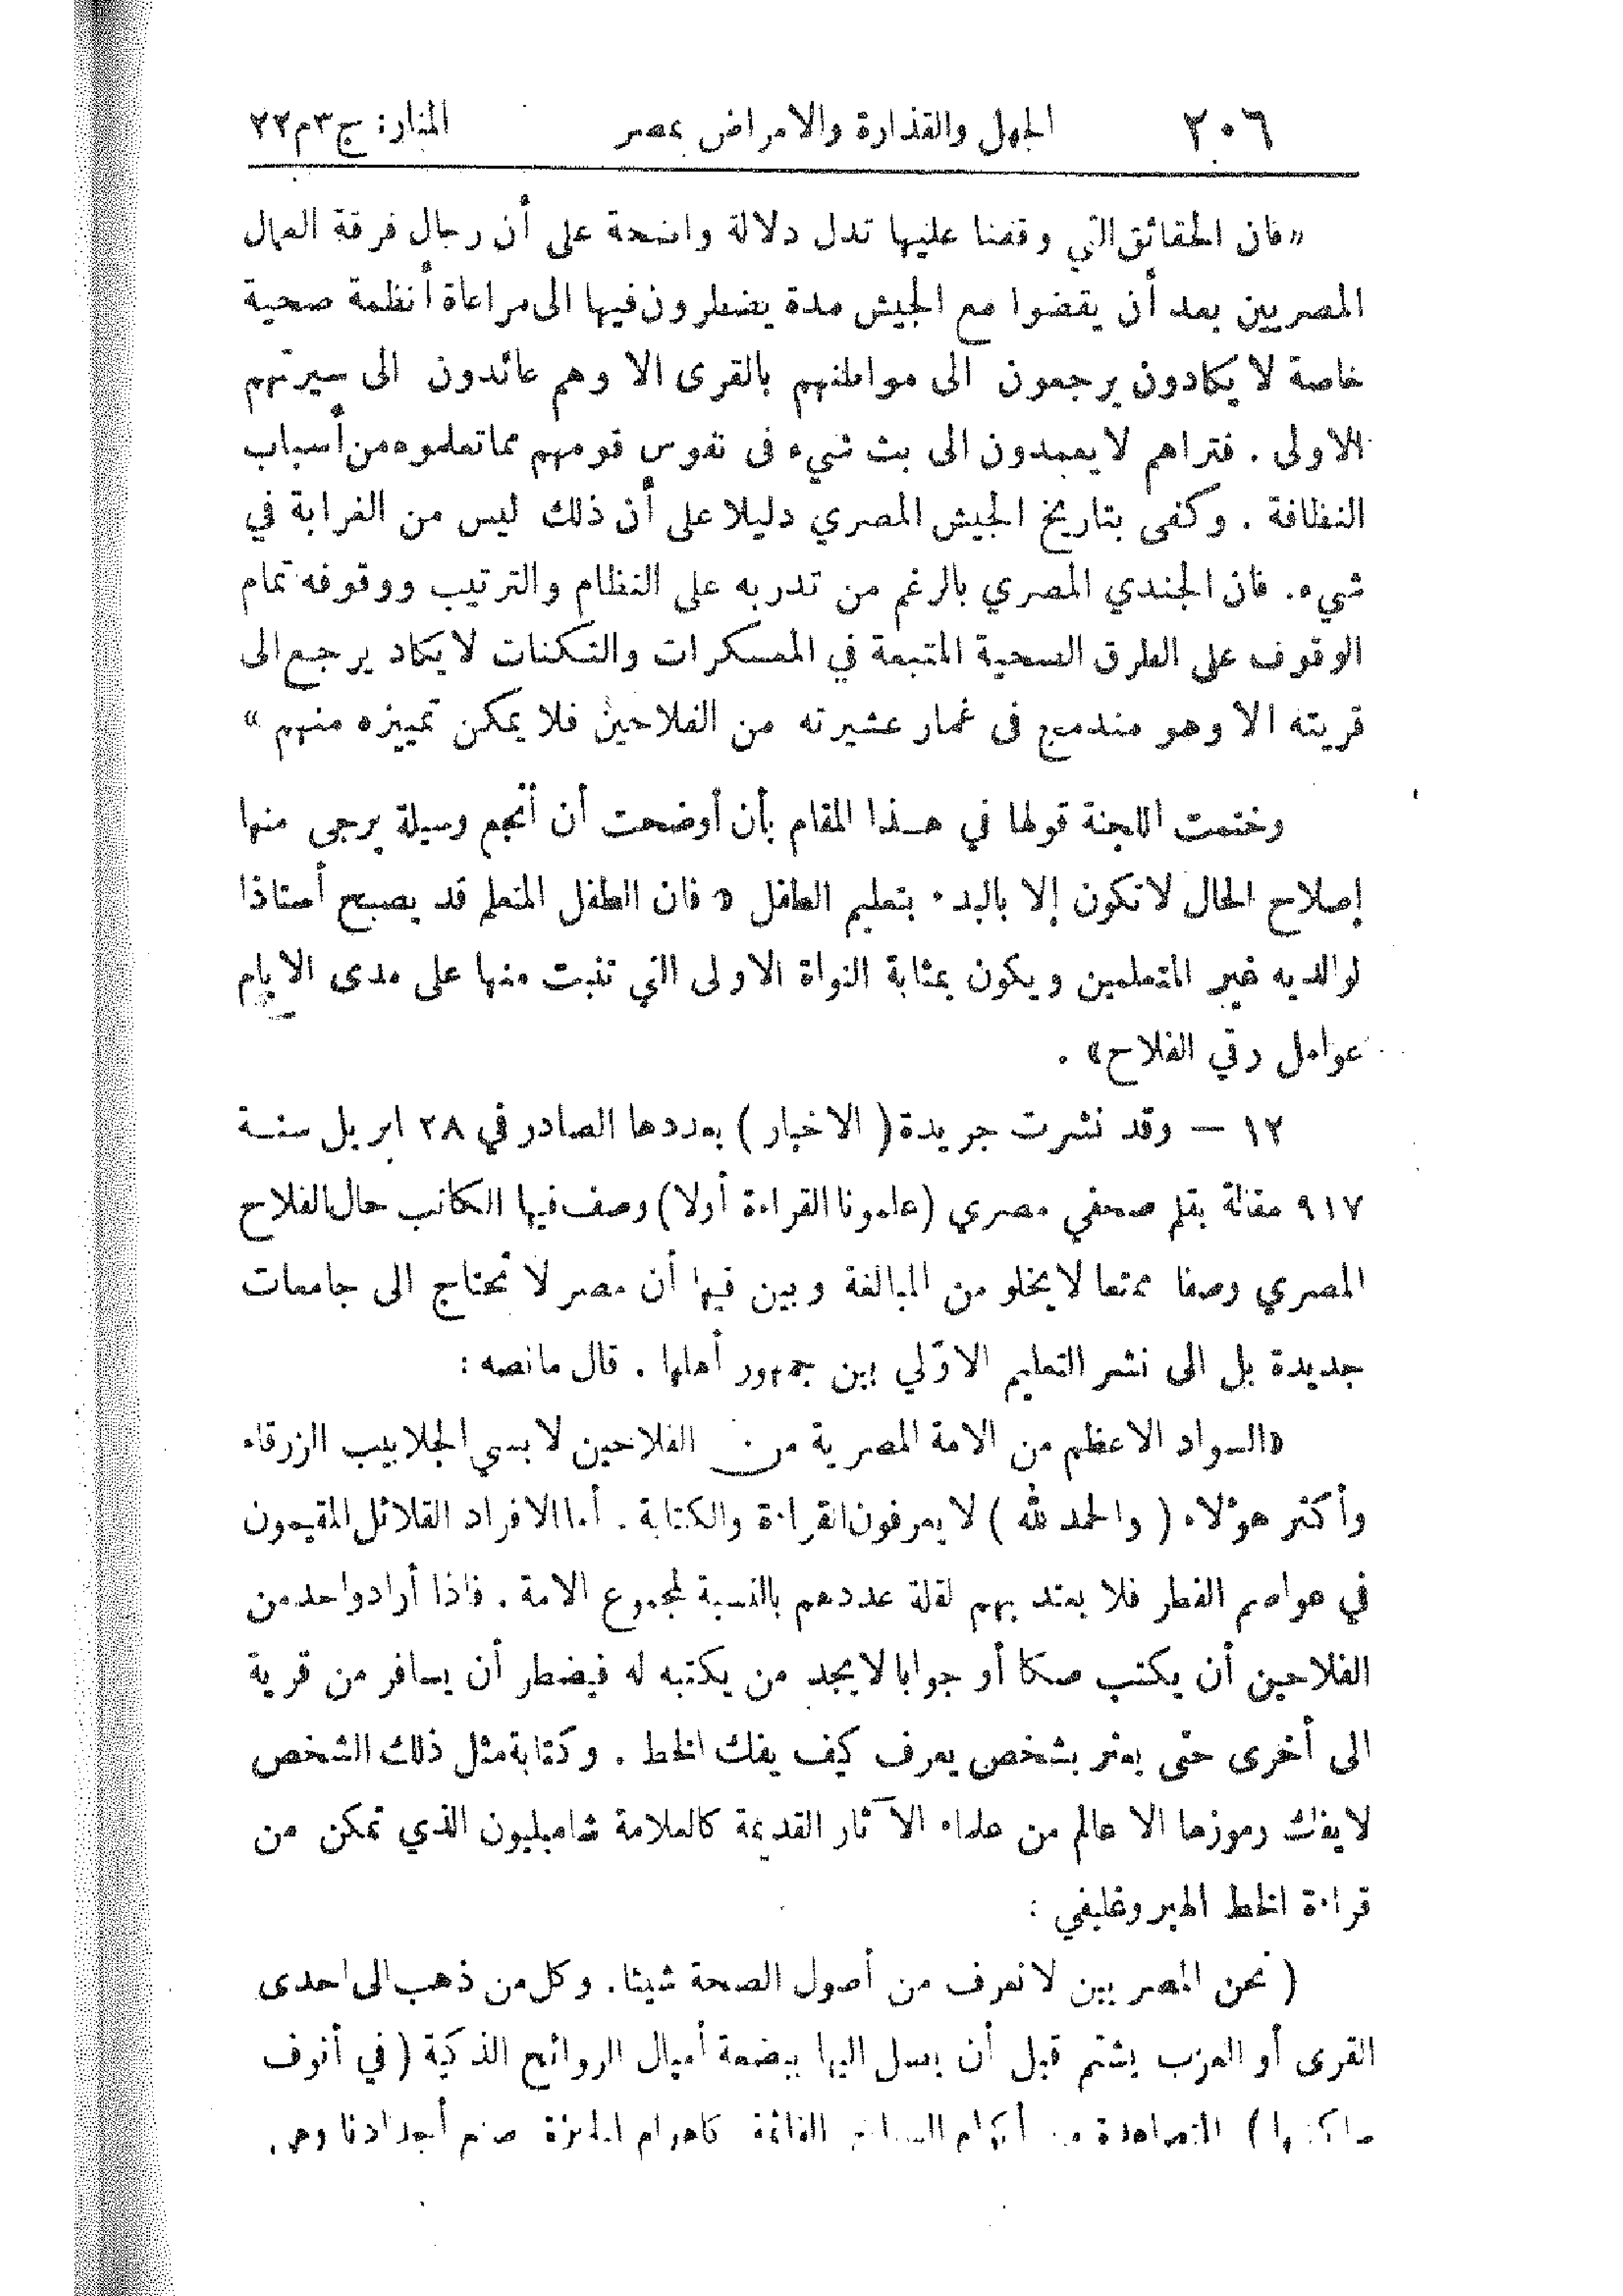 ٢٠٦ الجهل والقذارة والامراض بمصر المنار: ج٣م٢٢
«فان الحقائق التي وقفنا عليها تدل دلالة واضحة على أن رجال فرقة العمال
المصريين بعد أن يقضوا مع الجيش مدة يضطرون فيها الى مراعاة أنظمة صحية
خاصة لا يكادون يرجعون الى مواطنهم بالقرى الا وهم عائدون الى سيرتهم
الاولى . فتراهم لا يعمدون الى بث شيء فى نفوس قومهم مما تعلموه من أسباب
النظافة . وكفى بتاريخ الجيش المصري دليلا على أن ذلك ليس من الغرابة في
شيء. فان الجندي المصري بالرغم من تدربه على النظام والترتيب ووقوفه تمام
الوقوف على الطرق الصحية المتبعة في المعسكرات والثكنات لا يكاد يرجع الى
قريته الا وهو مندمج فى غمار عشيرته من الفلاحين فلا يمكن تمييزه منهم »
وختمت اللجنة قولها في هـذا المقام بأن أوضحت أن أنجع وسيلة يرجى منها
إصلاح الحال لا تكون إلا بالبدء بتعليم الطفل « فان الطفل المتعلم قد يصبح أستاذا
لوالديه غير المتعلمين ويكون بمثابة النواة الاولى التي تنبت منها على مدى الايام
عوامل رقي الفلاح» .
١٢ — وقد نشرت جريدة ( الاخبار ) بعددها الصادر في ٢٨ ابريل سنـة
٩١٧ مقالة بقلم صحفي مصري (علمونا القراءة أولا) وصف فيها الكاتب حال الفلاح
المصري وصفا ممتعا لا يخلو من المبالغة وبين فيها أن مصر لا تحتاج الى جامعات
جديدة بل الى نشر التعليم الاوّلي بين جمهور أهلها . قال ما نصه :
«السواد الاعظم من الامة المصرية من الفلاحين لابسي الجلابيب الزرقاء
وأكثر هؤلاء ( والحمد لله ) لا يعرفون القراءة والكتابة . أما الافراد القلائل المقيمون
في عواصم القطر فلا يعتد بهم لقلة عددهم بالنسبة لمجموع الامة . فاذا أراد واحد من
الفلاحين أن يكتب صكا أو جوابا لا يجد من يكتبه له فيضطر أن يسافر من قرية
الى أخرى حتى يعثر بشخص يعرف كيف يفك الخط . وكتابة مثل ذلك الشخص
لا يفك رموزها الا عالم من علماء الآثار القديمة كالعلامة شامبليون الذي تمكن من
قراءة الخط الهيروغليفي :
( نحن المصريين لا نعرف من أصول الصحة شيئا. وكل من ذهب الى احدى
القرى أو العزب يشتم قبل أن يصل اليها ببضعة أميال الروائح الذكية ( في أنوف
ساكنيها ) المتصاعدة من أكوام السباخ القائمة كاهرام الجيزة صنع أجدادنا